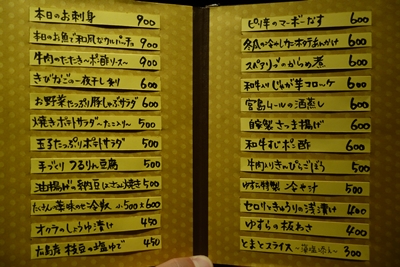 本日のお刺身 900
本日のお魚で和風なカルパッチョ 900
牛肉のたたき〜ポン酢ソース〜 900
きびなごの一夜干し炙り 600
お野菜たっぷり豚しゃぶサラダ 600
焼きポテトサラダ〜たこ入り〜 500
玉子たっぷりポテトサラダ 500
手づくりつるりん豆腐 500
油揚げの納豆はさみ焼き 500
たくさん薬味のせ冷奴 小500 大600
オクラのしょうゆ漬け 450
広島産枝豆の塩ゆで 450
ピリ辛のマーボーなす 600
冬瓜の冷やしたホタテあんかけ 600
スペアリブのからめ煮 600
和牛入りじゃが芋コロッケ 600
宮島ムールの酒蒸し 600
自家製さつま揚げ 600
和牛すじポン酢 600
牛肉入りきんぴらごぼう 500
ゆずら特製 冷や汁 500
セロリときゅうりの浅漬け 400
ゆずらの板わさ 400
とまとスライス〜藻塩添え〜 300